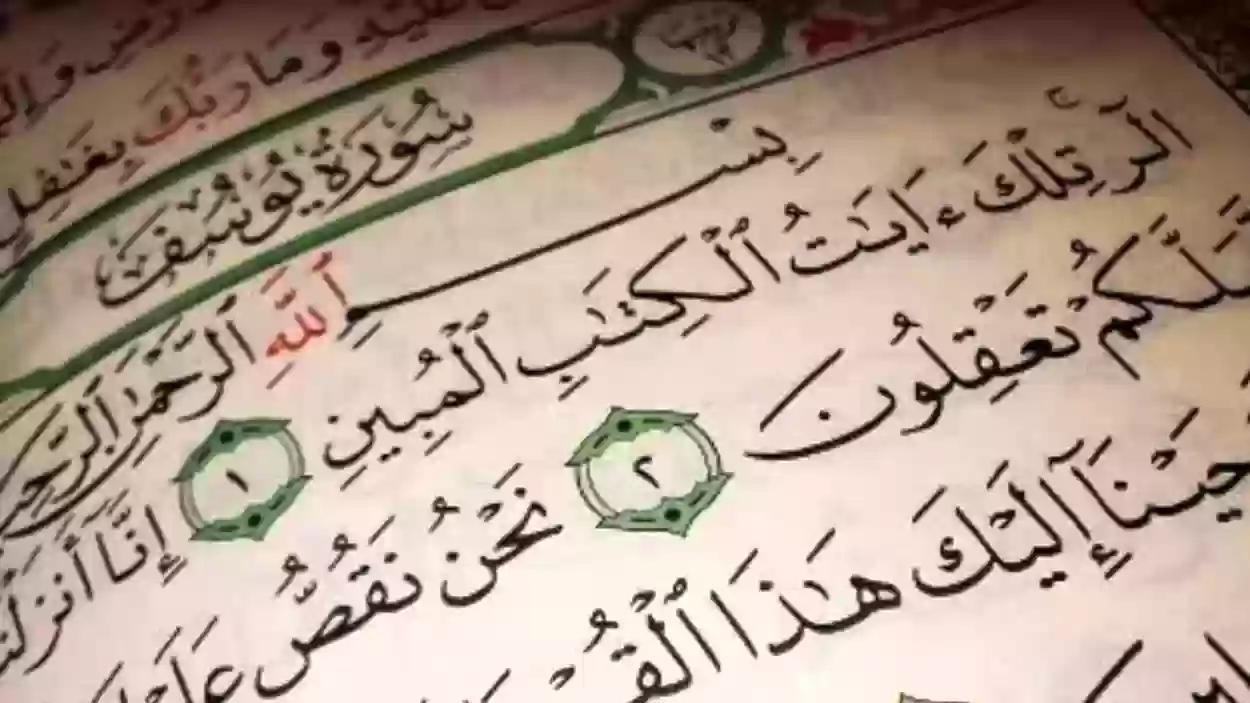 وَمَا رَبُّكَ بِغَـٰفِلٍ
سُورَةُ يُوسُفَ
بِسْمِ ٱللَّهِ ٱلرَّحْمَـٰنِ ٱلرَّحِيـ
الٓر تِلْكَ ءَايَـٰتُ ٱلْكِتَـٰبِ ٱلْمُبِينِ ١ إِنَّآ أَنزَلْنَـ
ـعَلَّكُمْ تَعْقِلُونَ ٢ نَحْنُ نَقُصُّ عَلَيْـ
ـحَيْنَآ إِلَيْكَ هَـٰذَا ٱلْقُرْ